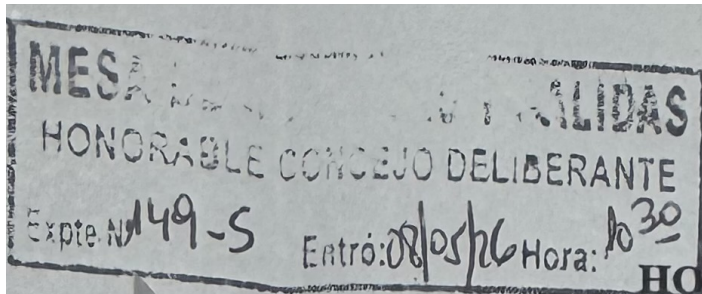 MESA
HONORABLE CONCEJO DELIBERANTE
Expte. Nº 149-S Entró: 08/05/26 Hora: 10 30
HO